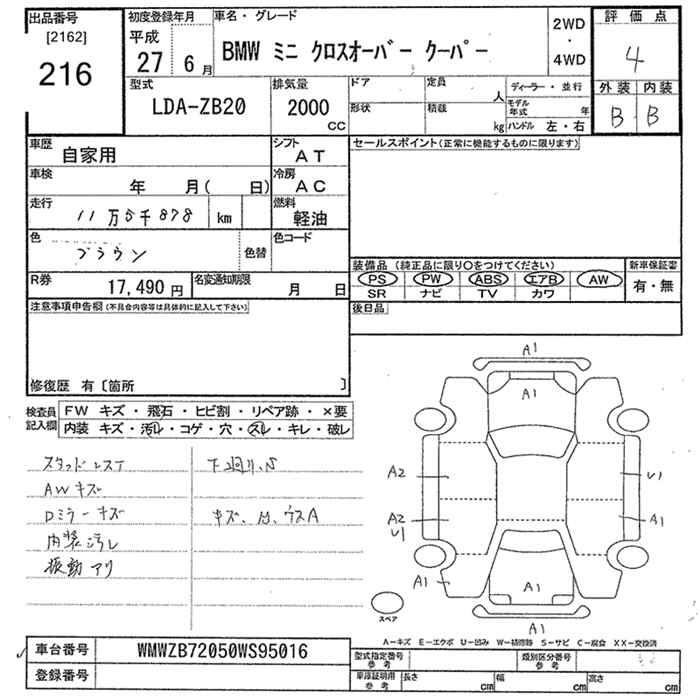 出品番号
[2162]
216
初度登録年月
平成
27 6月
車名・グレード
BMW ミニ クロスオーバー クーパー
2WD
・
4WD
評価点
4
外装 内装
B B
型式
LDA-ZB20
排気量
2000
CC
ドア
形状
定員
人
積載
kg
ディーラー・並行
モデル年式 年
ハンドル 左・右
車歴
自家用
シフト
AT
車検
年 月( 日)
冷房
AC
走行
11万5千878 km
燃料
軽油
色
ブラウン
色替
色コード
R券
17,490円
名変通知期限
月 日
セールスポイント(正常に機能するものに限ります)
装備品(純正品に限り○をつけてください)
PS PW ABS エアB AW
SR ナビ TV カワ
新車保証書
有・無
後日品
注意事項申告欄(不具合内容等は具体的に記入して下さい)
修復歴 有〔箇所 〕
検査員記入欄
FW キズ・飛石・ヒビ割・リペア跡・×要
内装 キズ・汚レ・コゲ・穴・スレ・キレ・破レ
AWキズ
Dミラーキズ
内装汚レ
振動アリ
下廻リ、S
キズ、U、ウスA
A1
A1
A2
A2
U1
A1
U1
A1
A1
A1
スペア
A-キズ E-エクボ U-凹み W-補修跡 S-サビ C-腐食 XX-交換済
車台番号
WMWZB72050WS95016
登録番号
型式指定番号
参考
類別区分番号
参考
車庫証明用
参考
長さ cm
幅 cm
高さ cm